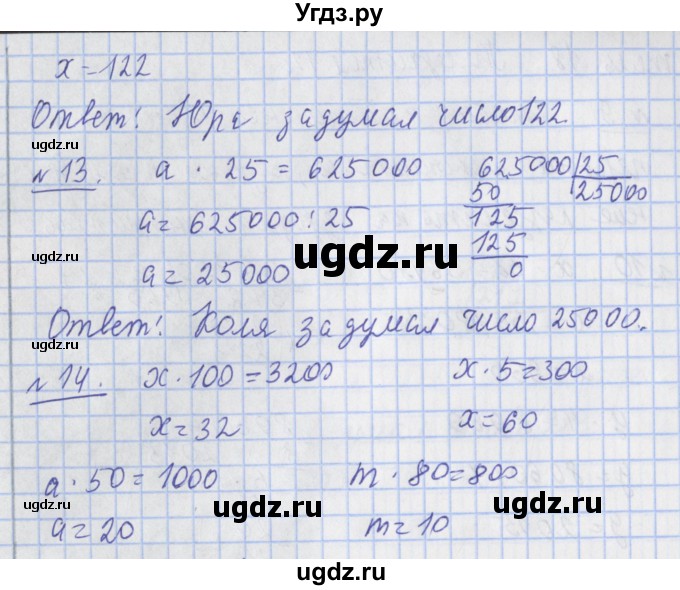 Угдз.ру
x = 122
Ответ: Юра задумал число 122.
ugdz.ru ugdz.ru
№ 13. a · 25 = 625000 625000 | 25
50 25000
a = 625000 : 25 125
ugdz.ru ugdz.ru ugdz.ru
125
a = 25000 0
Ответ: Коля задумал число 25000.
ugdz.ru ugdz.ru
№ 14. x · 100 = 3200 x · 5 = 300
x = 32 x = 60
ugdz.ru ugdz.ru ugdz.ru
a · 50 = 1000 m · 80 = 800
a = 20 m = 10
ugdz.ru ugdz.ru
ugdz.ru